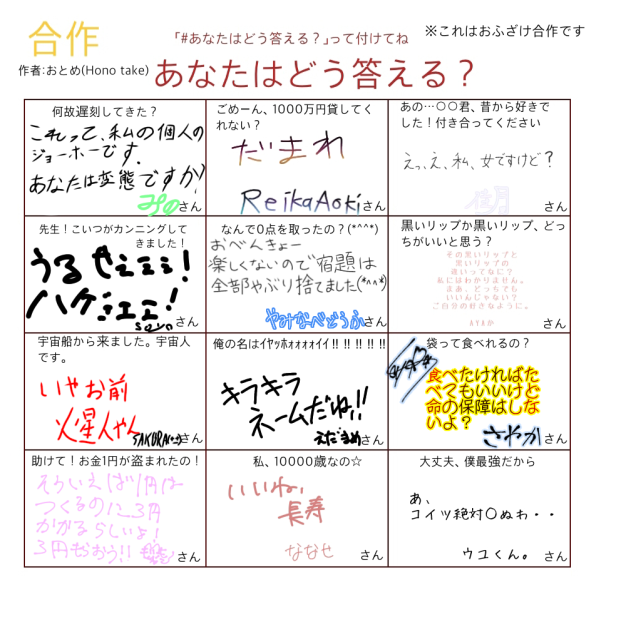 合作
「#あなたはどう答える？」って付けてね
※これはおふざけ合作です
作者:おとめ(Hono take)
あなたはどう答える？
何故遅刻してきた？
これって、私の個人の
ジョーホーです.
あなたは変態ですか?
みの さん
ごめーん、1000万円貸してく
れない？
だまれ
ReikaAoki さん
あの…○○君、昔から好きで
した！付き合ってください
えっ、え、私、女ですけど?
さん
先生！こいつがカンニングして
きました！
うるせェェェ!
ハゲェェェ!
さん
なんで0点を取ったの？(*^^*)
おべんきょー
楽しくないので宿題は
全部やぶり捨てました(*^^*)
やみなべどうふ さん
黒いリップか黒いリップ、どっ
ちがいいと思う？
その黒いリップと
黒いリップの
違いってなに?
私にはわかりません。
まあ、どっちでも
いいんじゃない?
ご自分の好きなように。
AYAか さん
宇宙船から来ました。宇宙人
です。
いやお前
火星人やん
SAKURA さん
俺の名はｲﾔｯﾎｫｫｫｫｲイ！！！！！！
キラキラ
ネームだね!!
えだまめ さん
袋って食べれるの？
食べたければた
べてもいいけど
命の保障はしな
いよ？
さやか さん
助けて！お金1円が盗まれたの！
そういえば1円は
つくるのに3円
かかるらしいよ!
3円もおう!!
さん
私、10000歳なの☆
いいね,
長寿
ななせ さん
大丈夫、僕最強だから
あ、
コイツ絶対○ぬわ・・
ウユくん。 さん